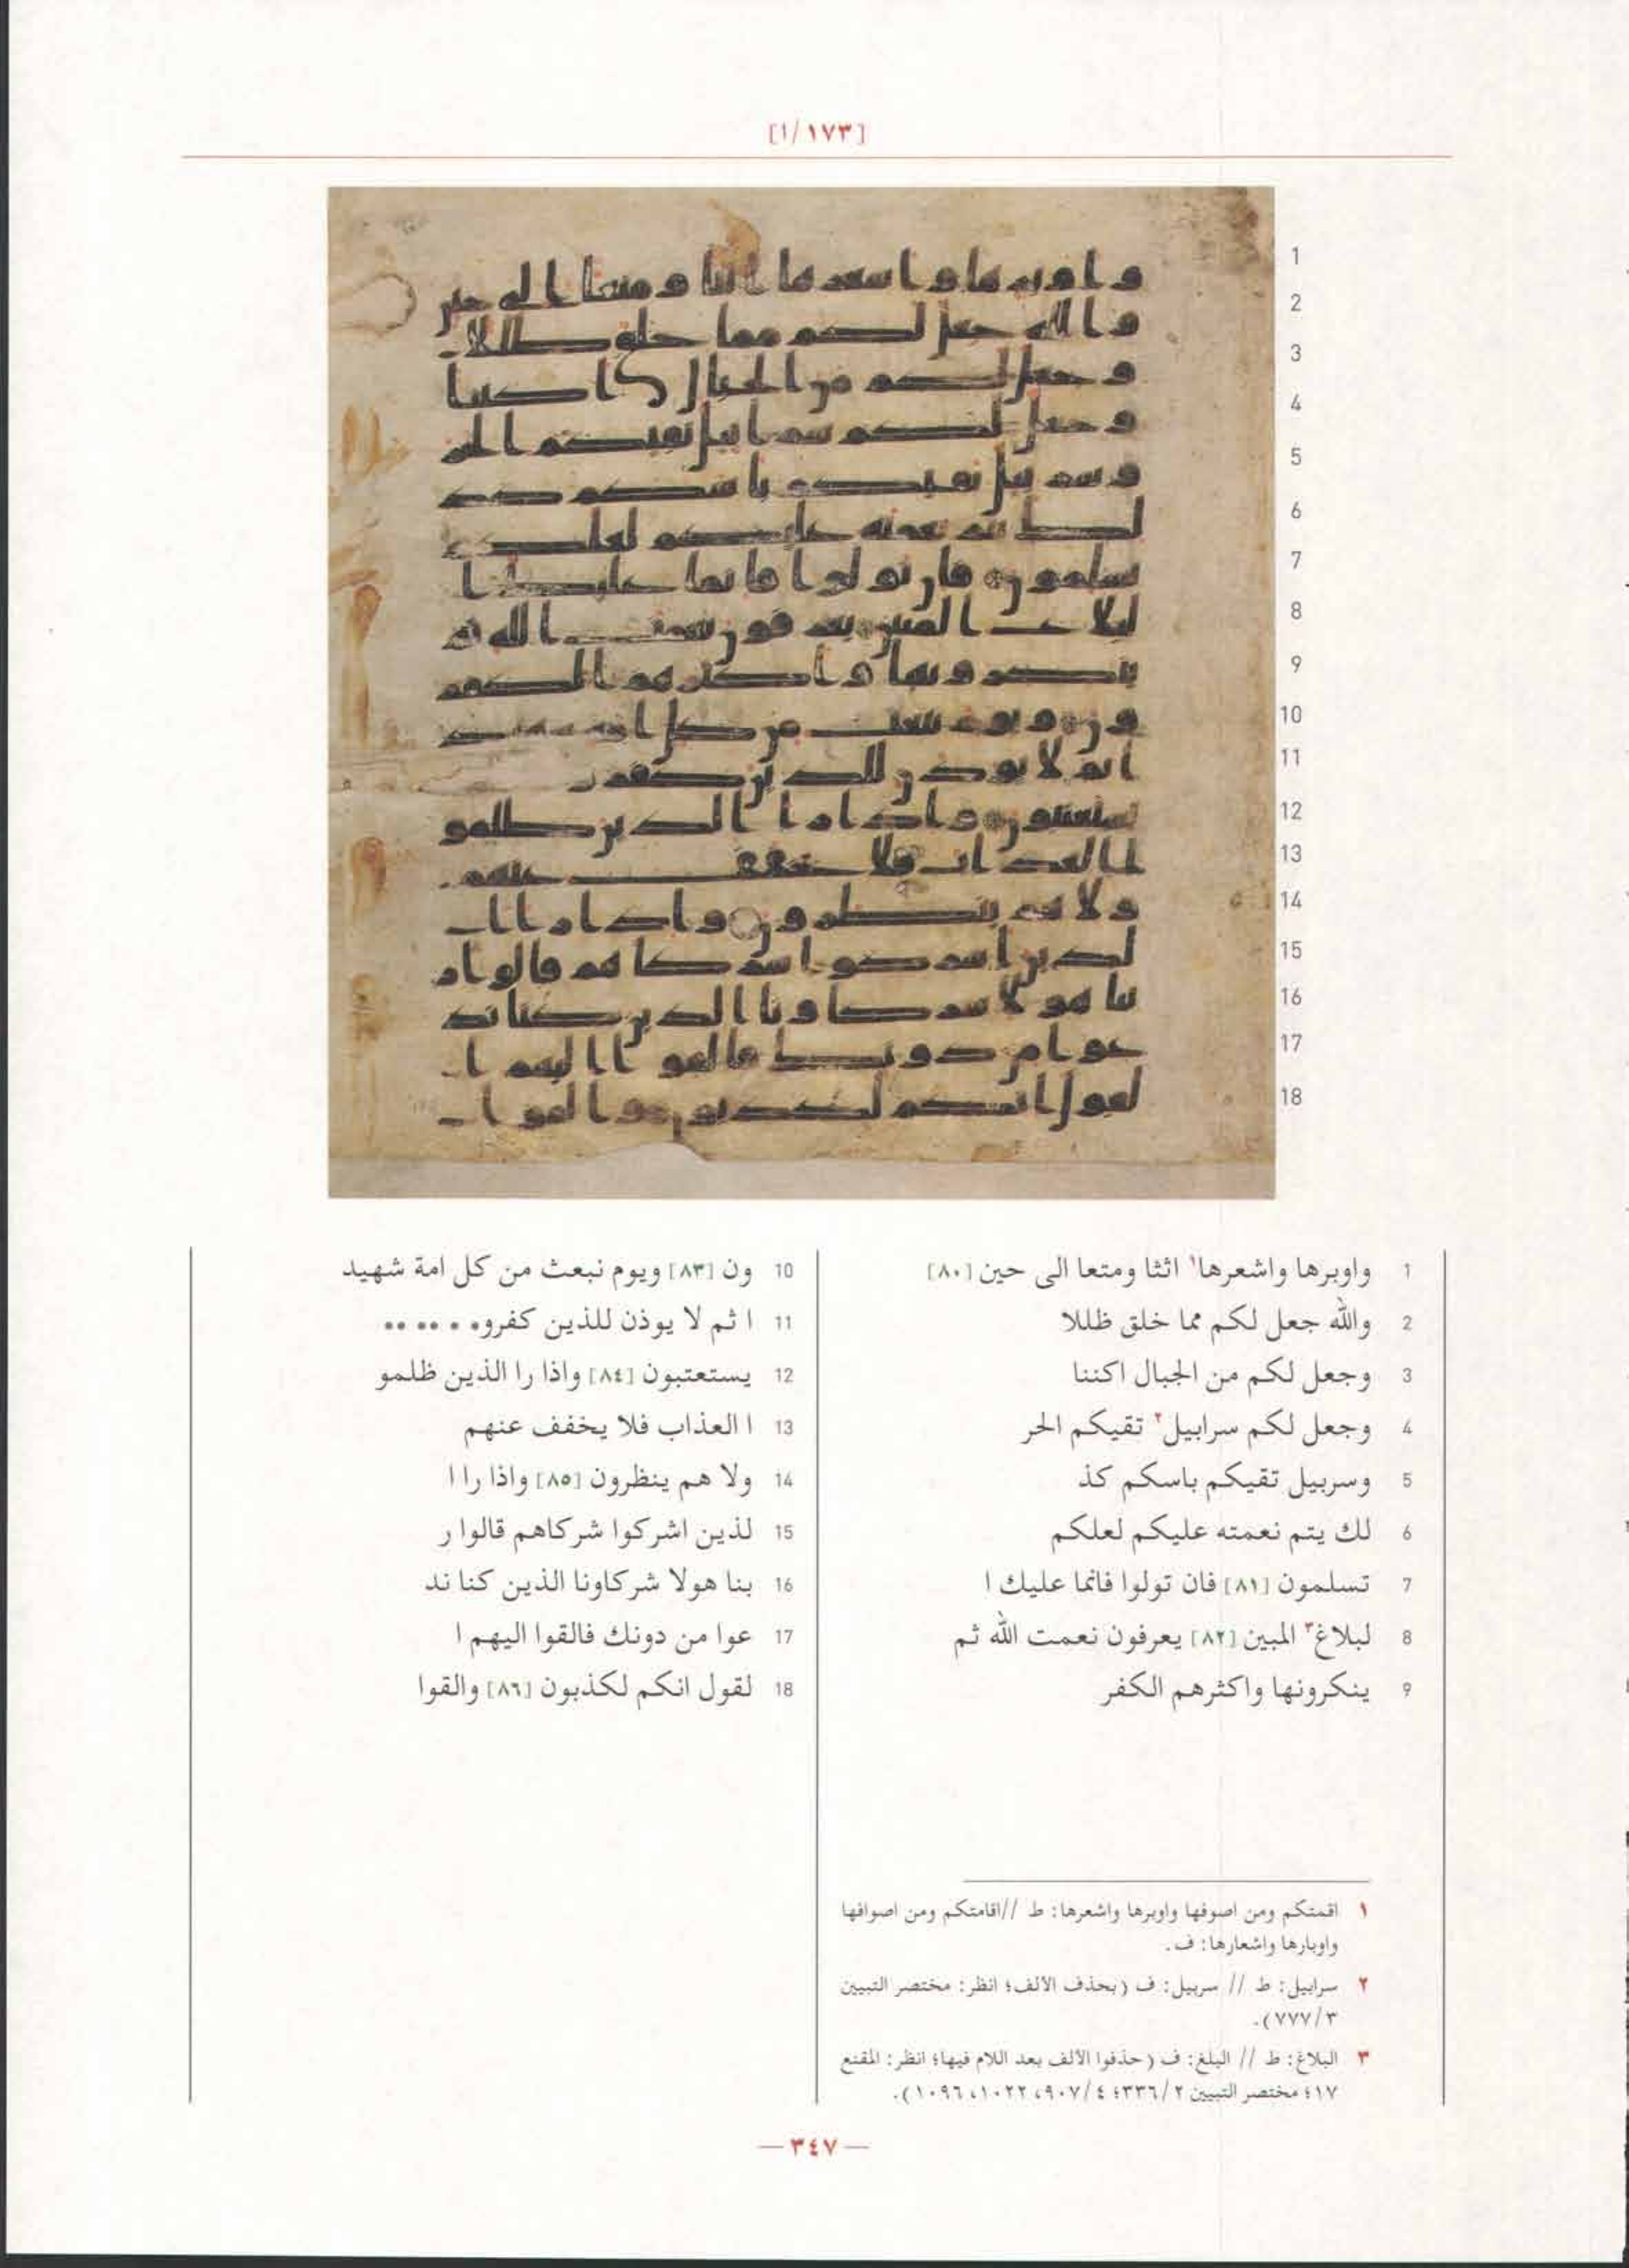 [١/١٧٣]
1 واوبرها واشعرها١ اثثا ومتعا الى حين [٨٠]
2 والله جعل لكم مما خلق ظللا
3 وجعل لكم من الجبال اكننا
4 وجعل لكم سرابيل٢ تقيكم الحر
5 وسربيل تقيكم باسكم كذ
6 لك يتم نعمته عليكم لعلكم
7 تسلمون [٨١] فان تولوا فانما عليك ا
8 لبلاغ٣ المبين [٨٢] يعرفون نعمت الله ثم
9 ينكرونها واكثرهم الكفر
10 ون [٨٣] ويوم نبعث من كل امة شهيد
11 ا ثم لا يوذن للذين كفرو• • •• ••
12 يستعتبون [٨٤] واذا را الذين ظلمو
13 ا العذاب فلا يخفف عنهم
14 ولا هم ينظرون [٨٥] واذا را ا
15 لذين اشركوا شركاهم قالوا ر
16 بنا هولا شركاونا الذين كنا ند
17 عوا من دونك فالقوا اليهم ا
18 لقول انكم لكذبون [٨٦] والقوا
١ اقمتكم ومن اصوفها واوبرها واشعرها: ط //اقامتكم ومن اصوافها
واوبارها واشعارها: ف.
٢ سرابيل: ط // سربيل: ف (بحذف الالف؛ انظر: مختصر التبيين
٧٧٧/٣).
٣ البلاغ: ط // البلغ: ف (حذفوا الألف بعد اللام فيها؛ انظر: المقنع
١٧؛ مختصر التبيين ٣٣٦/٢؛ ٩٠٧/٤، ١٠٢٢، ١٠٩٦).
— ٣٤٧ —